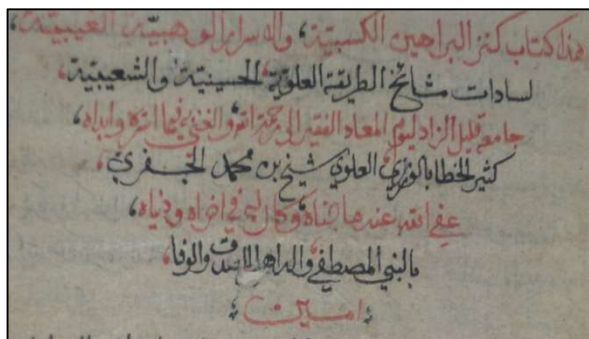 هذا كتاب كنز البراهين الكسبية، والاسرار الوهبية الغيبية،
لسادات مشائخ الطريقة العلوية الحسينية والشعيبية،
جامعه قليل الزاد ليوم المعاد الفقير الى رحمة الله والغني فيما اسره وابداه،
كثير الخطا بالورى العلوي شيخ بن محمد الجفري،
عفى الله عنه ما جناه وكان له في اخراه ودنياه،
بالنبي المصطفى واله اهل الصدق والوفا،
امين